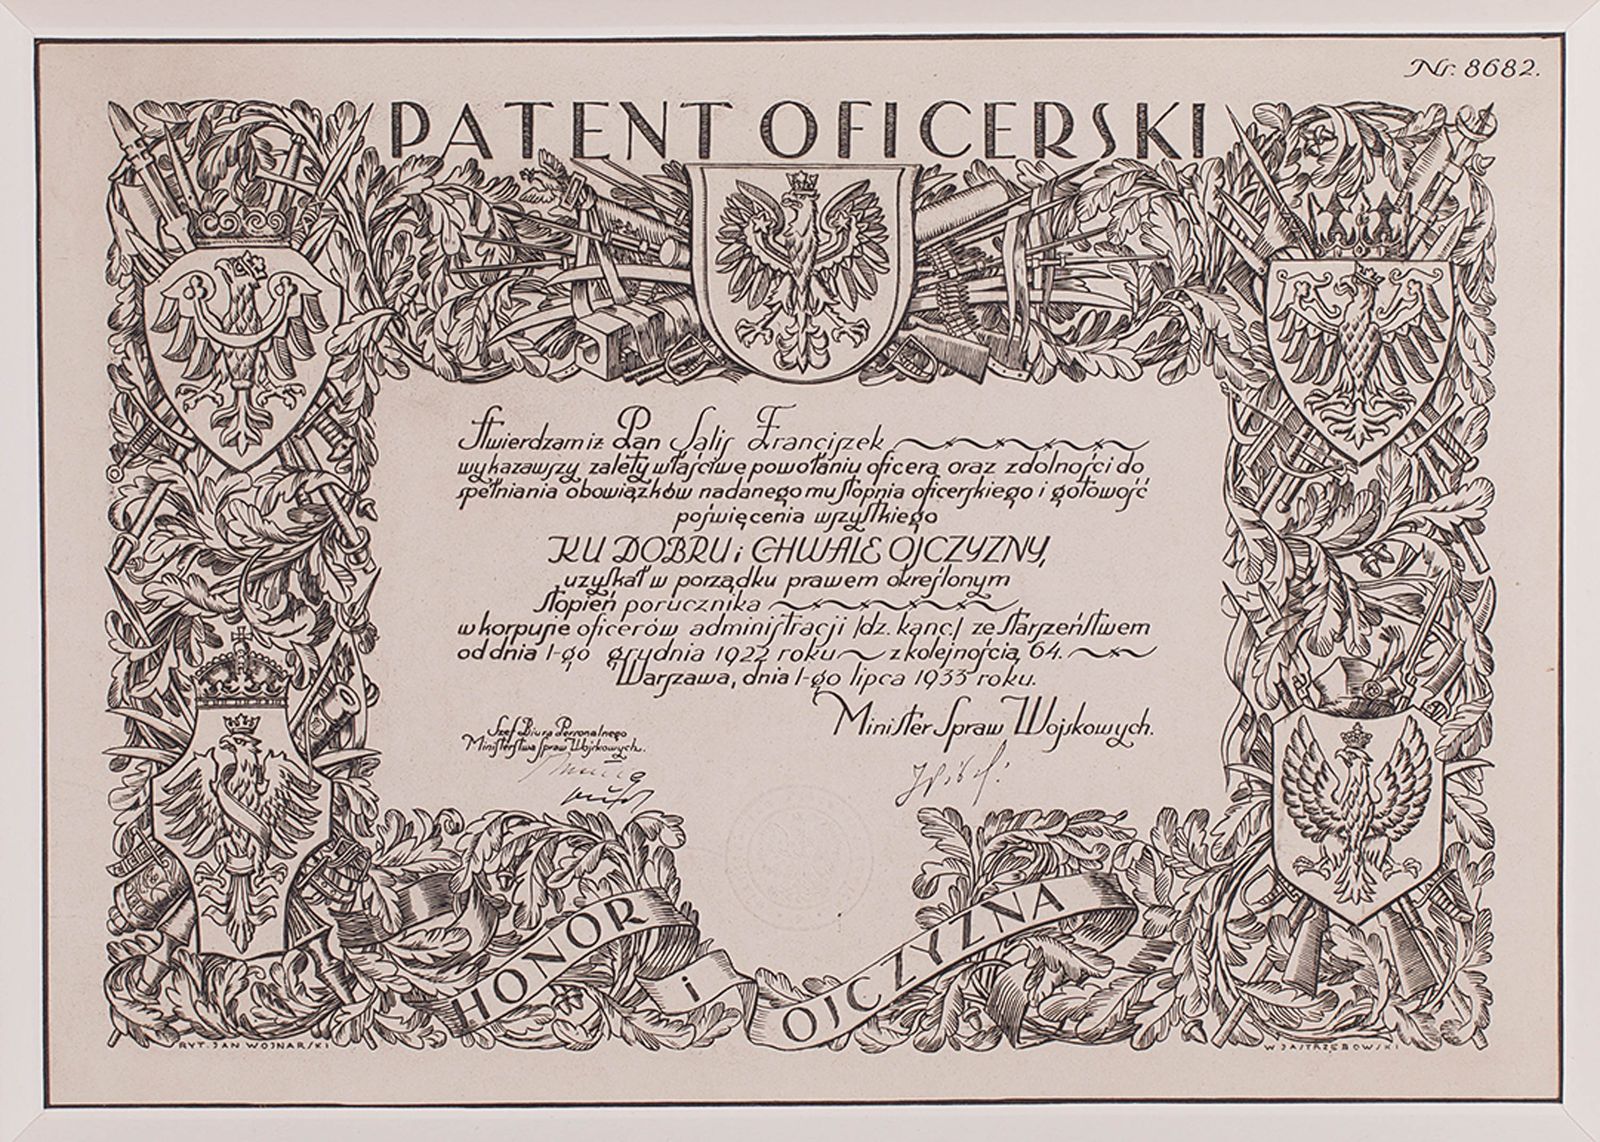 Nr. 8682.
PATENT OFICERSKI
Stwierdzam iż Pan Salis Franciszek
wykazawszy zalety właściwe powołaniu oficera oraz zdolności do
spełniania obowiązków nadanego mu stopnia oficerskiego i gotowość
poświęcenia wszystkiego
KU DOBRU i CHWALE OJCZYZNY,
uzyskał w porządku prawem określonym
stopień porucznika
w korpusie oficerów administracji /dz. kanc./ ze starszeństwem
od dnia 1-go grudnia 1922 roku z kolejnością 64.
Warszawa, dnia 1-go lipca 1933 roku.
Minister Spraw Wojskowych.
Szef Biura Personalnego
Ministerstwa Spraw Wojskowych.
HONOR i OJCZYZNA
RYT. JAN WOJNARSKI
W. JASTRZĘBOWSKI